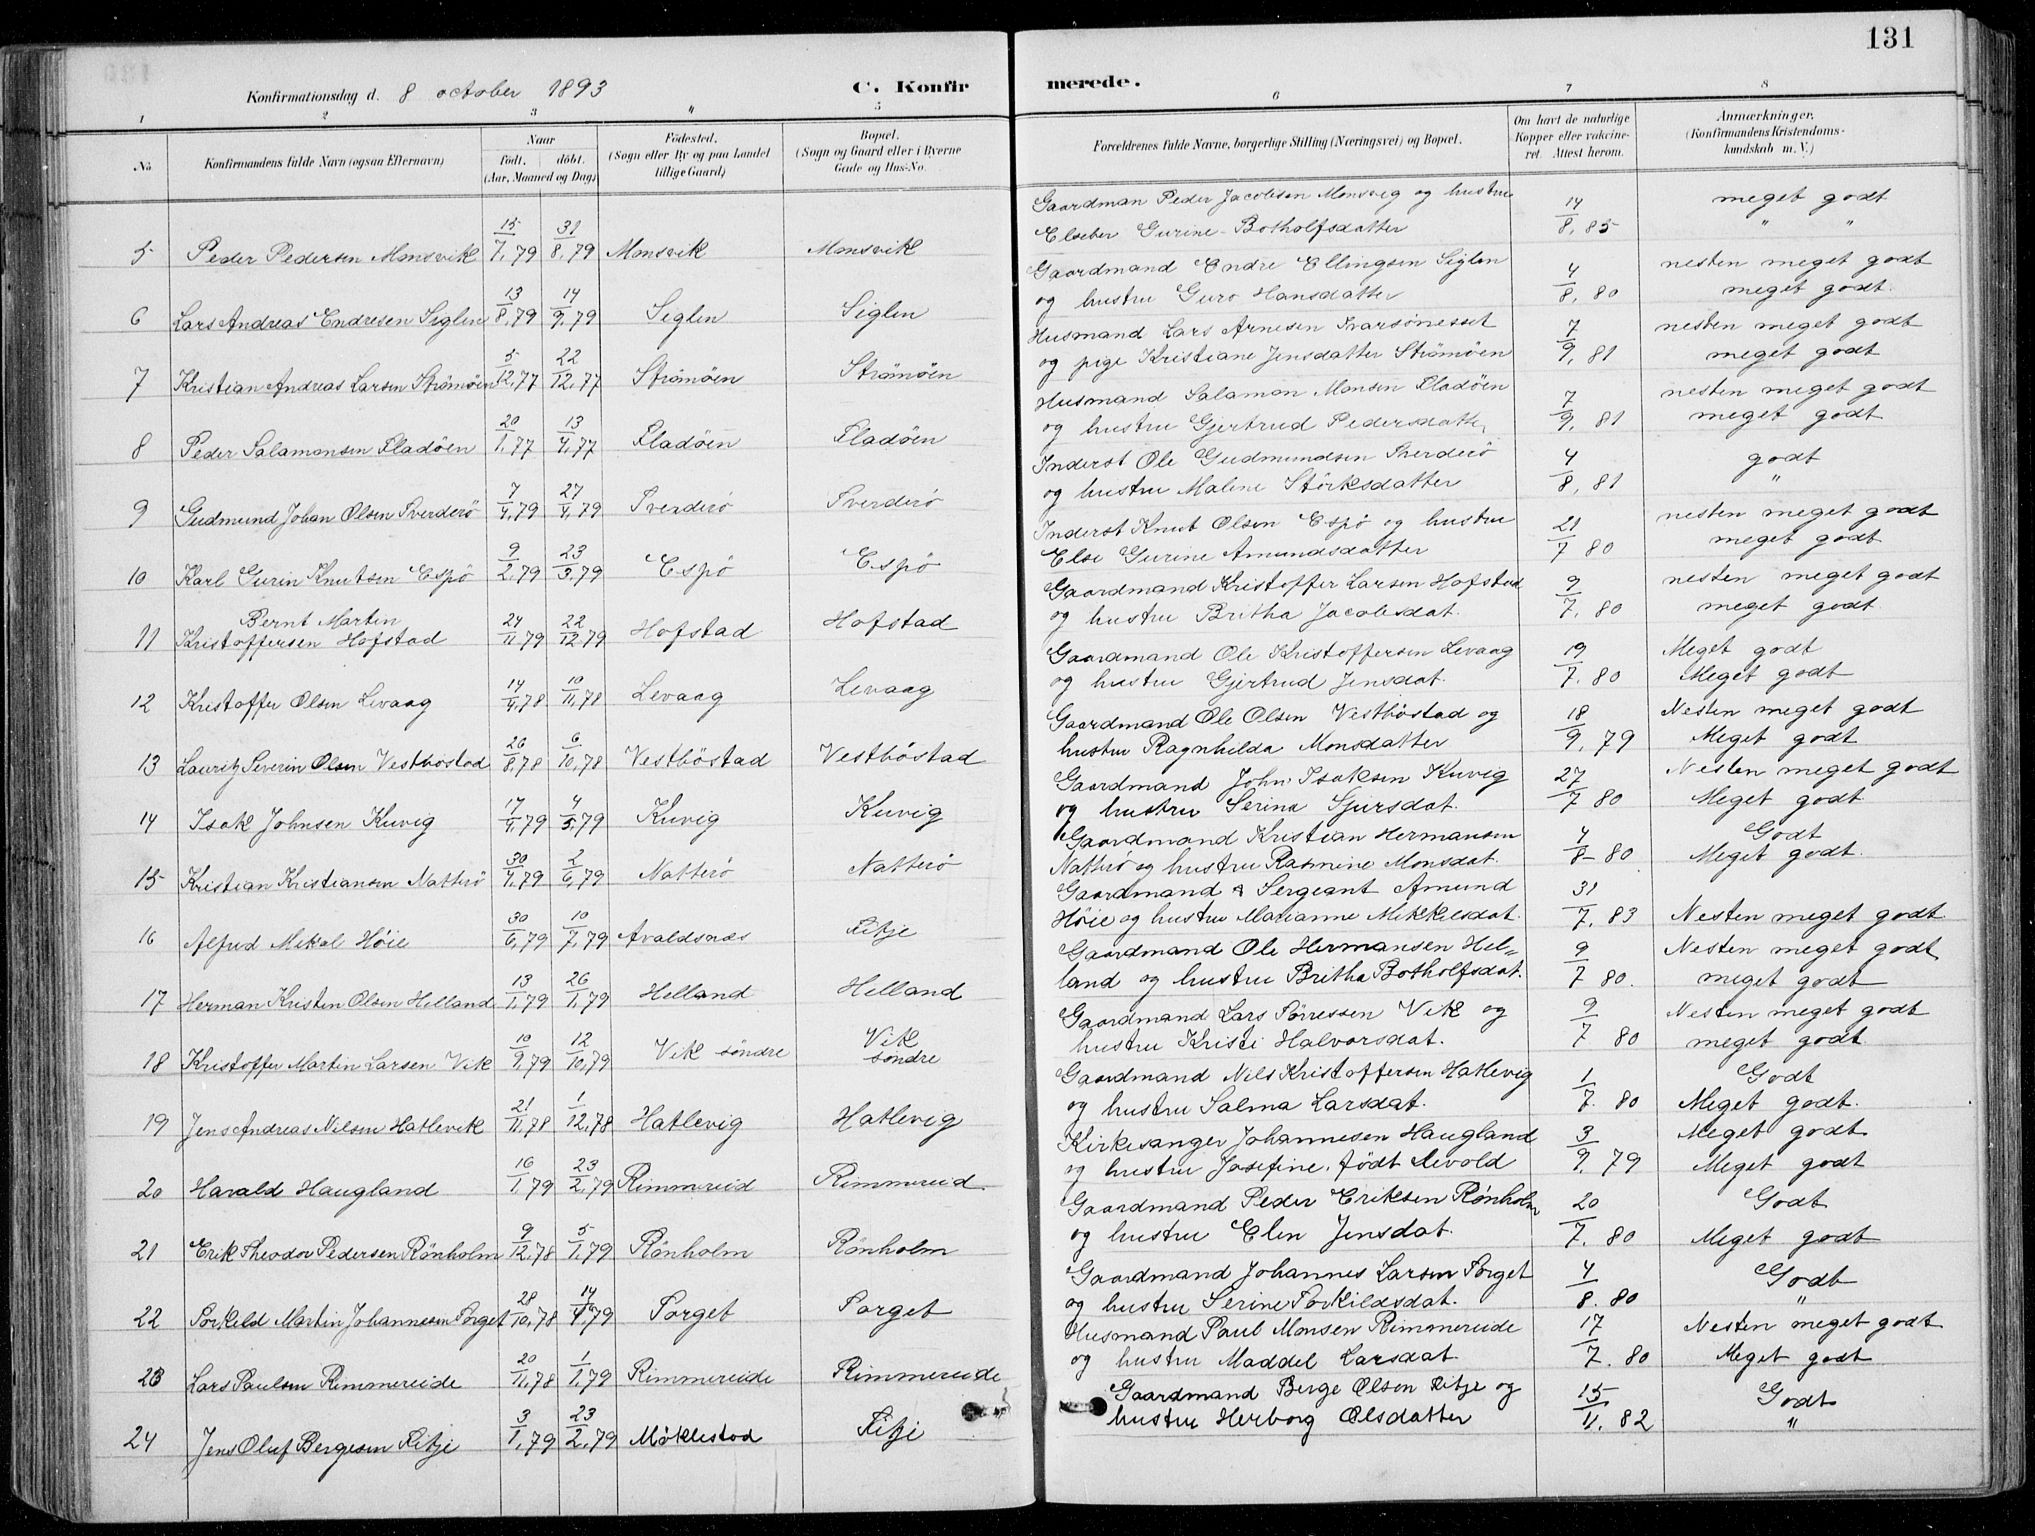 131
Konfirmationsdag d. 8 october 1893
C. Konfirmerede.
1 2 3 4 5 6 7 8
No
Konfirmandens fulde Navn (ogsaa Efternavn)
Naar
født. døbt.
(Aar, Maaned og Dag)
Fødested.
(Sogn eller By og paa Landet tillige Gaard)
Bopæl.
(Sogn og Gaard eller i Byerne Gade og Hus-No.
Forældrenes fulde Navne, borgerlige Stilling (Næringsvei) og Bopæl.
Om havt de naturlige Kopper eller vakcineret. Attest herom.
Anmærkninger.
(Konfirmandens Kristendomskundskab m. V.)
5 Peder Pedersen Monsvik 15/7, 79 31/8, 79 Monsvik Monsvik Gaardman Peder Jacobsen Monsvig og hustru 14/8, 85 meget godt
Elseber Gurine Botholfsdatter " "
6 Lars Andreas Endresen Siglen 13/8, 79 14/9, 79 Siglen Siglen Gaardmand Endre Ellingsen Siglen 4/8, 80 nesten meget godt
og hustru Guro Hansdatter meget godt.
7 Kristian Andreas Larsen Strömöen 5/12, 77 22/12, 77 Strömöen Strömöen Husmand Lars Arnesen Ivarsönesset 7/9, 81 nesten meget godt
og pige Kristiane Jensdatter Strömöen meget godt
8 Peder Salamonsen Fladöen 20/1, 77 13/4, 77 Fladöen Fladöen Husmand Salamon Monsen Fladöen 7/9, 81 nesten meget godt
og hustru Gjertrud Pedersdatter meget godt
9 Gudmund Johan Olsen Sverderö 7/4, 79 27/4, 79 Sverderö Sverderö Inderst Ole Gudmundsen Sverderö 4/8, 81 godt
og hustru Malene Störksdatter "
10 Karl Gurin Knutsen Espö 9/2, 79 23/3, 79 Espö Espö Inderst Knut Olsen Espö og hustru 21/7 80 nesten meget godt
Else Gurine Amundsdatter meget godt
11 Bernt Martin Kristoffersen Hofstad 24/11, 79 22/12, 79 Hofstad Hofstad Gaardmand Kristoffer Larsen Hofstad 9/7, 80 nesten meget godt
og hustru Britha Jacobsdat. meget godt
12 Kristoffer Olsen Levaag 14/4, 78 10/11, 78 Levaag Levaag Gaardmand Ole Kristoffersen Levaag 19/7. 80 Meget godt
og hustru Gjertrud Jensdat. Meget godt
13 Lauritz Severin Olsen Vestböstad 26/8, 78 6/10, 78 Vestböstad Vestböstad Gaardmand Ole Olsen Vestböstad og 18/9, 79 Nesten meget godt
hustru Ragnhilda Monsdatter Meget godt
14 Isak Johnsen Kuvig 17/4, 79 4/5, 79 Kuvig Kuvig Gaardmand John Isaksen Kuvig 27/7 80 Nesten meget godt
og hustru Serina Sjursdat. Meget godt
15 Kristian Kristiansen Natterö 30/4, 79 2/6, 79 Natterö Natterö Gaardmand Kristian Hermansen 4/8- 80 Godt
Natterö og hustru Rasmine Monsdat. Meget godt.
16 Alfred Mikal Höie 30/6, 79 10/7, 79 Avaldsnæs Fitje Gaardmand & Sergeant Amund 31/7, 83
Höie og hustru Marianne Mikkelsdat. Nesten meget godt
17 Herman Kristen Olsen Helland 13/1, 79 26/1, 79 Helland Helland Gaardmand Ole Hermansen Hel= 9/7 80. Nesten meget godt
land og hustru Britha Botholfsdat. meget godt
18 Kristoffer Martin Larsen Vik 10/9, 79 12/10, 79 Vik söndre Vik söndre Gaardmand Lars Sörressen Vik og 9/7 80 Nesten meget godt
hustru Kristi Halvorsdat. meget godt
19 Jens Andreas Nilsen Hatlevik 21/11, 78 1/12, 78 Hatlevig Hatlevig Gaardmand Nils Kristoffersen Hatlevig 1/7. 80 Godt
og hustru Salma Larsdat. Meget godt.
20 Harald Haugland 16/1, 79 23/2, 79 Rimmereid Rimmereid Kirkesanger Johannesen Haugland 3/9, 79 Meget godt
og hustru Josefine, født Levold Meget godt
21 Erik Theodor Pedersen Rönholm 9/12, 78 5/1, 79 Rönholm Rönholm Gaardmand Peder Eriksen Rönholm 20/7. 80 Godt
og hustru Elen Jensdat. Meget godt
22 Torkild Martin Johannesen Torget 28/10, 78 14/4, 79 Torget Torget Gaardmand Johannes Larsen Torget 4/8. 80 Godt
og hustru Serine Torkildsdat. "
23 Lars Paulsen Rimmereide 20/11, 78 1/1, 79 Rimmereide Rimmereide Husmand Paul Monsen Rimmereide 17/7. 80 Nesten meget godt
og hustru Maddel Larsdat. Meget godt
24 Jens Oluf Bergesen Fitje 3/1, 79 23/2, 79 Möklestad Fitje Gaardmand Berge Olsen Fitje og 15/11. 82 Godt
hustru Herborg Olsdatter "